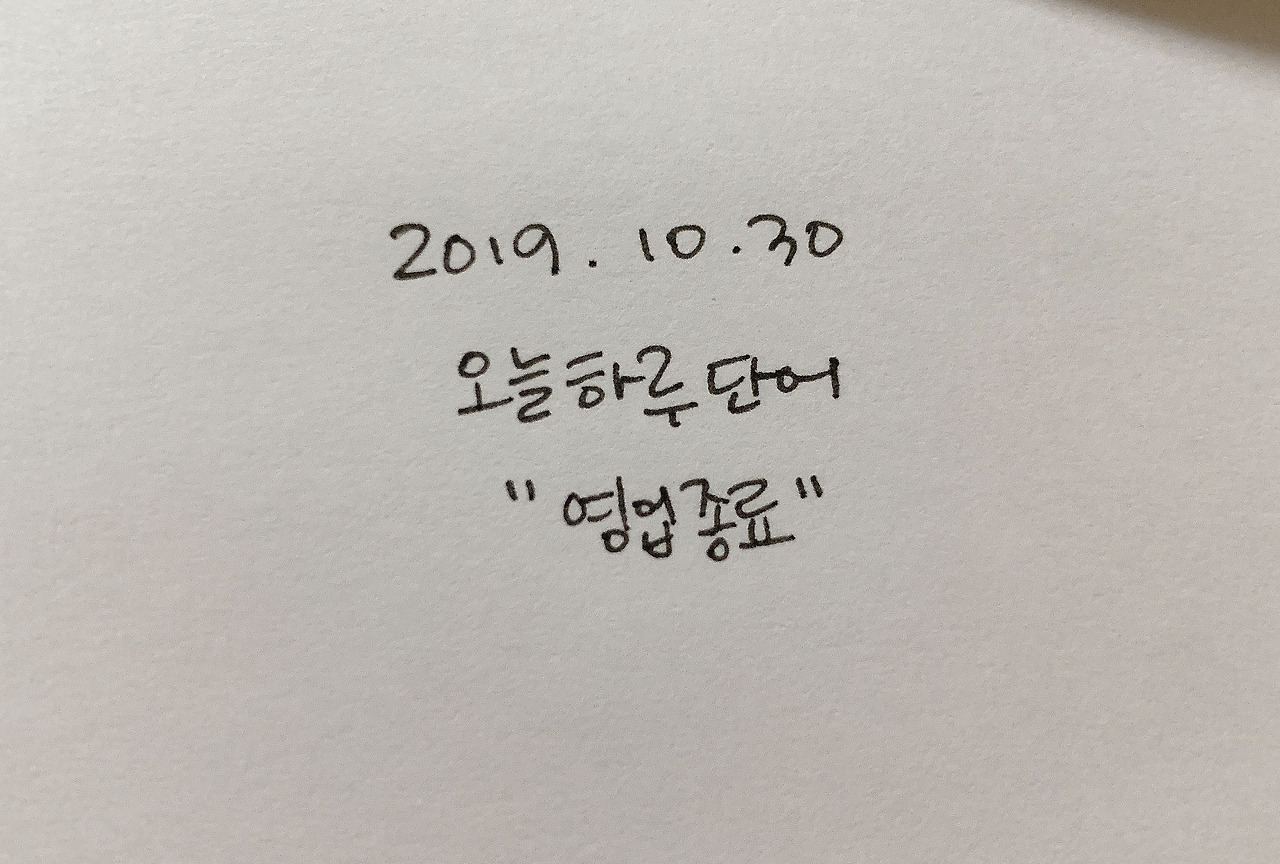 2019. 10.30
오늘하루 단어
"영업종료"